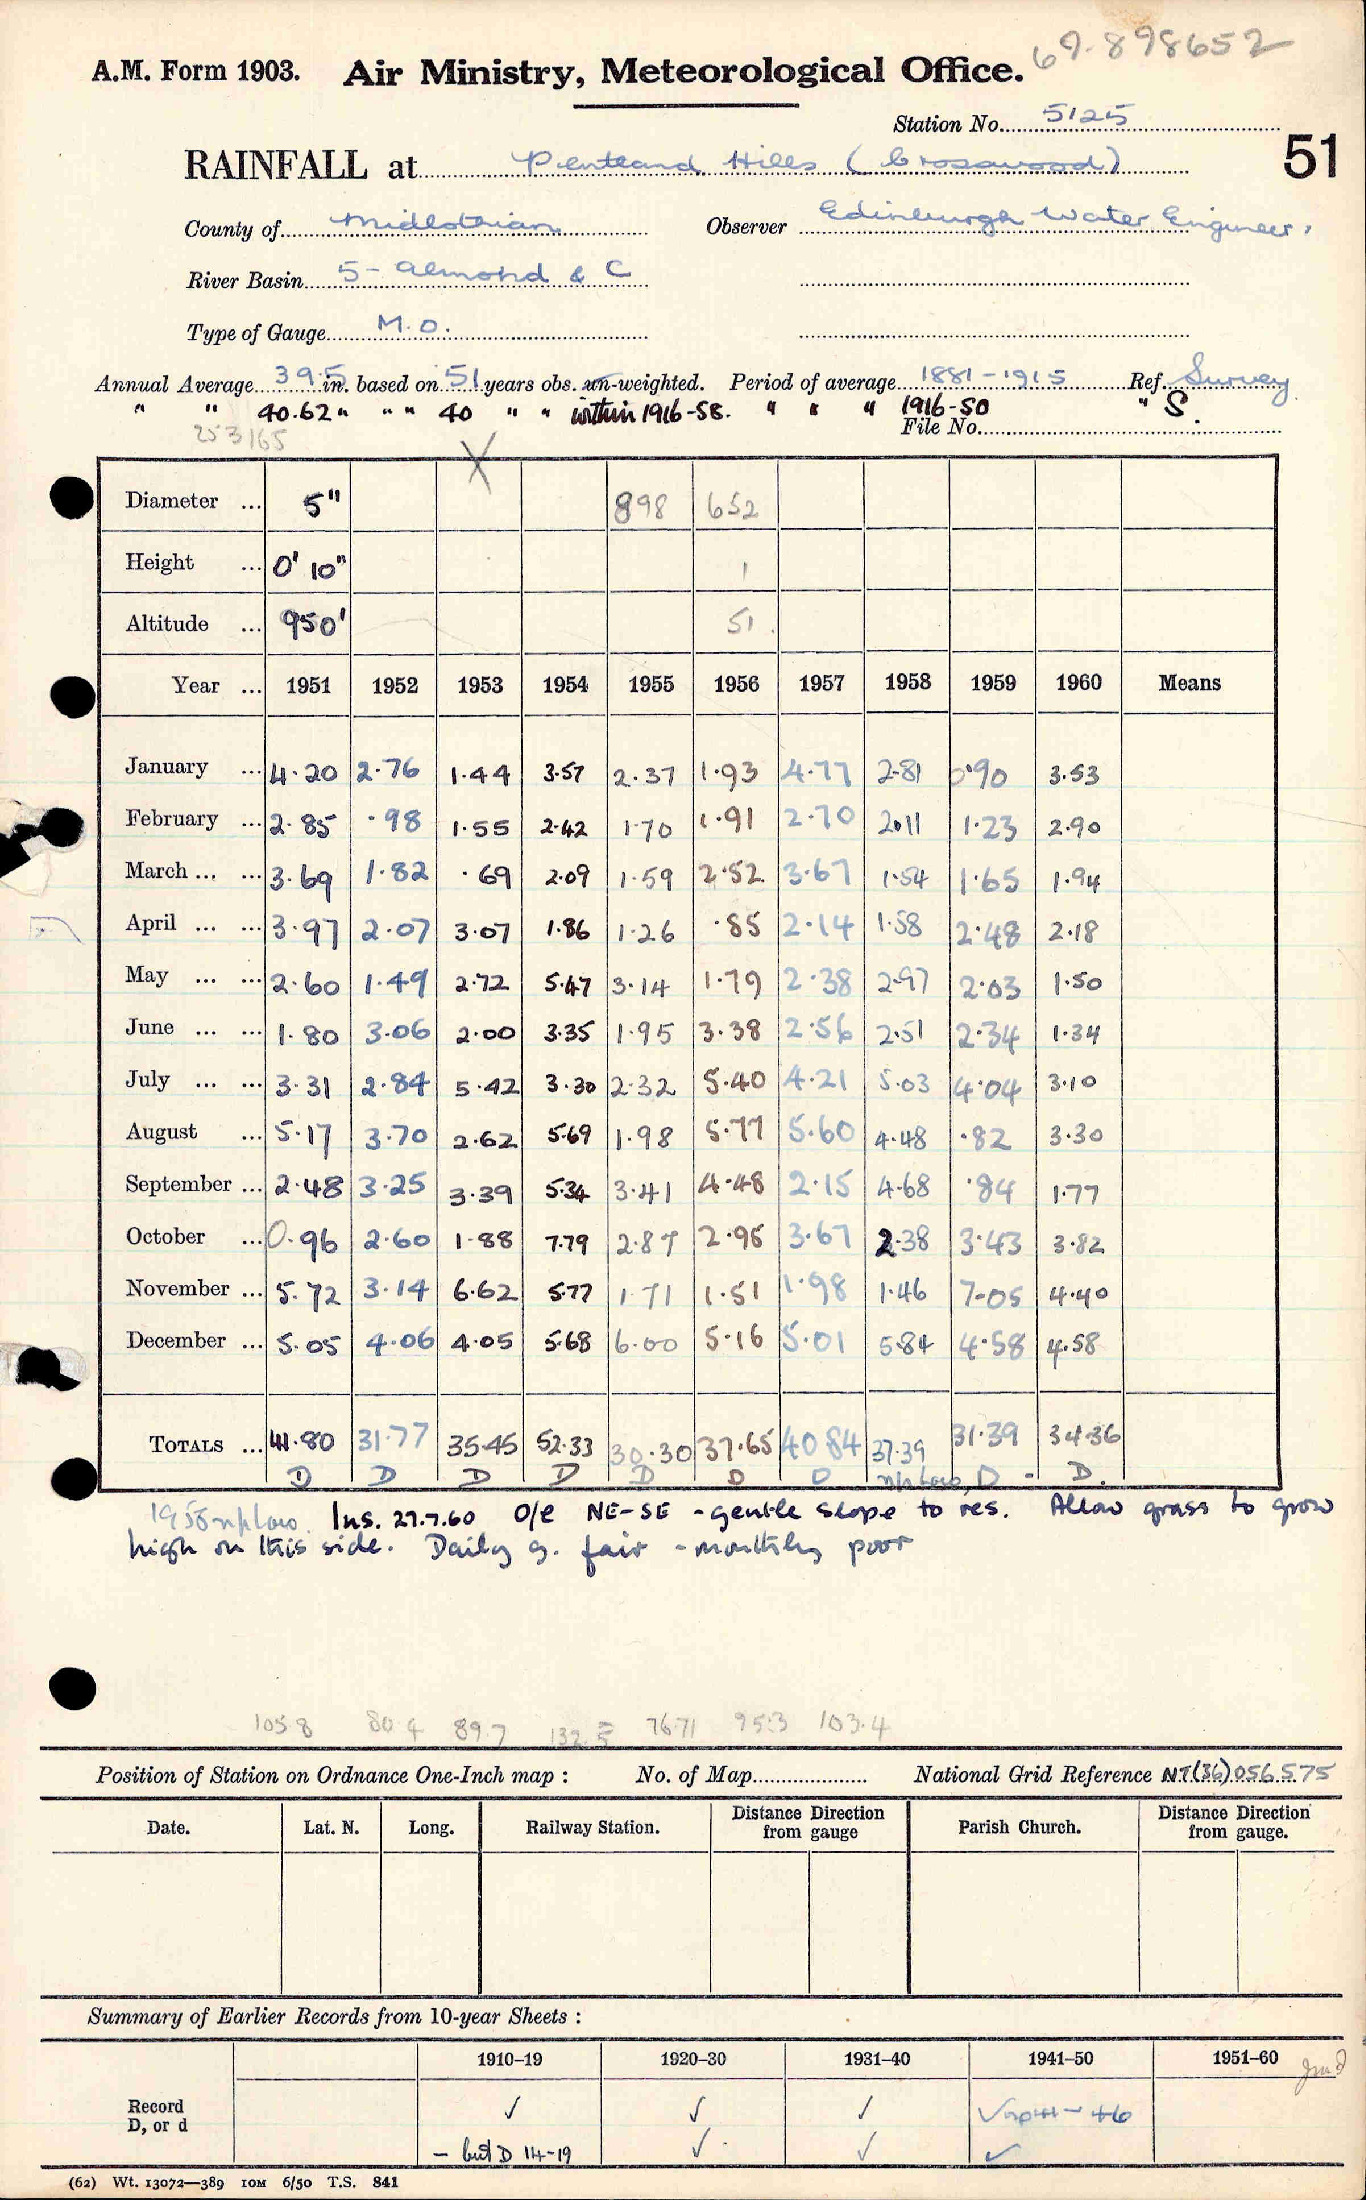 69.898652
A.M. Form 1903. Air Ministry, Meteorological Office.
Station No. 5125
51
RAINFALL at Pentland Hills (Crosswood)
County of Midlothian Observer Edinburgh Water Engineer.
River Basin 5 - Almond & C
Type of Gauge M.O.
Annual Average 39.5 in. based on 51 years obs. un-weighted. Period of average 1881-1915 Ref. Survey
" " 40.62 " " " 40 " " within 1916-58. " " " 1916-50 " S.
253165 File No.
X
Diameter ... 5" 898 652
Height ... 0' 10" 1
Altitude ... 950' 51
Year ... 1951 1952 1953 1954 1955 1956 1957 1958 1959 1960 Means
January ... 4.20 2.76 1.44 3.57 2.37 1.93 4.77 2.81 0.90 3.53
February ... 2.85 .98 1.55 2.42 1.70 1.91 2.70 2.11 1.23 2.90
March ... ... 3.69 1.82 .69 2.09 1.59 2.52 3.67 1.54 1.65 1.94
April ... ... 3.97 2.07 3.07 1.86 1.26 .85 2.14 1.58 2.48 2.18
May ... ... 2.60 1.49 2.72 5.47 3.14 1.79 2.38 2.97 2.03 1.50
June ... ... 1.80 3.06 2.00 3.35 1.95 3.38 2.56 2.51 2.34 1.34
July ... ... 3.31 2.84 5.42 3.30 2.32 5.40 4.21 5.03 4.04 3.10
August ... 5.17 3.70 2.62 5.69 1.98 5.77 5.60 4.48 .82 3.30
September ... 2.48 3.25 3.39 5.34 3.41 4.48 2.15 4.68 .84 1.77
October ... 0.96 2.60 1.88 7.79 2.87 2.95 3.67 2.38 3.43 3.82
November ... 5.72 3.14 6.62 5.77 1.71 1.51 1.98 1.46 7.05 4.40
December ... 5.05 4.06 4.05 5.68 6.00 5.16 5.01 5.84 4.58 4.58
TOTALS ... 41.80 31.77 35.45 52.33 30.30 37.65 40.84 37.39 31.39 34.36
D D D D D D D D - D.
Ins. 27.7.60 O/e NE-SE - gentle slope to res. Allow grass to grow
high on this side. Daily g. fair - monthly poor
105.8 80.4 89.7 132.5 76.71 95.3 103.4
Position of Station on Ordnance One-Inch map : No. of Map National Grid Reference NT(36)056575
Date. Lat. N. Long. Railway Station. Distance Direction from gauge Parish Church. Distance Direction from gauge.
Summary of Earlier Records from 10-year Sheets :
1910-19 1920-30 1931-40 1941-50 1951-60
Record ✓ ✓ ✓ ✓
D, or d - but D 14-19 ✓ ✓ ✓
(62) Wt. 13072—389 10M 6/50 T.S. 841